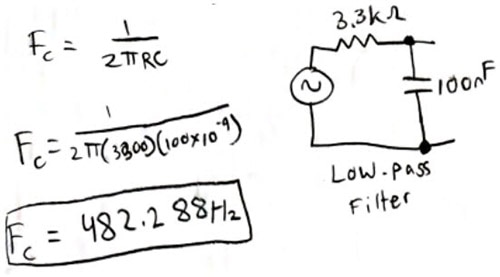 Fc = 1 / 2πRC
Fc = 1 / 2π(3300)(100×10⁻⁹)
Fc = 482.288Hz
3.3kΩ
100nF
Low-pass
Filter